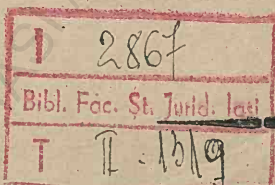 I 2867
Bibl. Fac. Șt. Jurid. Iași
T II - 1319